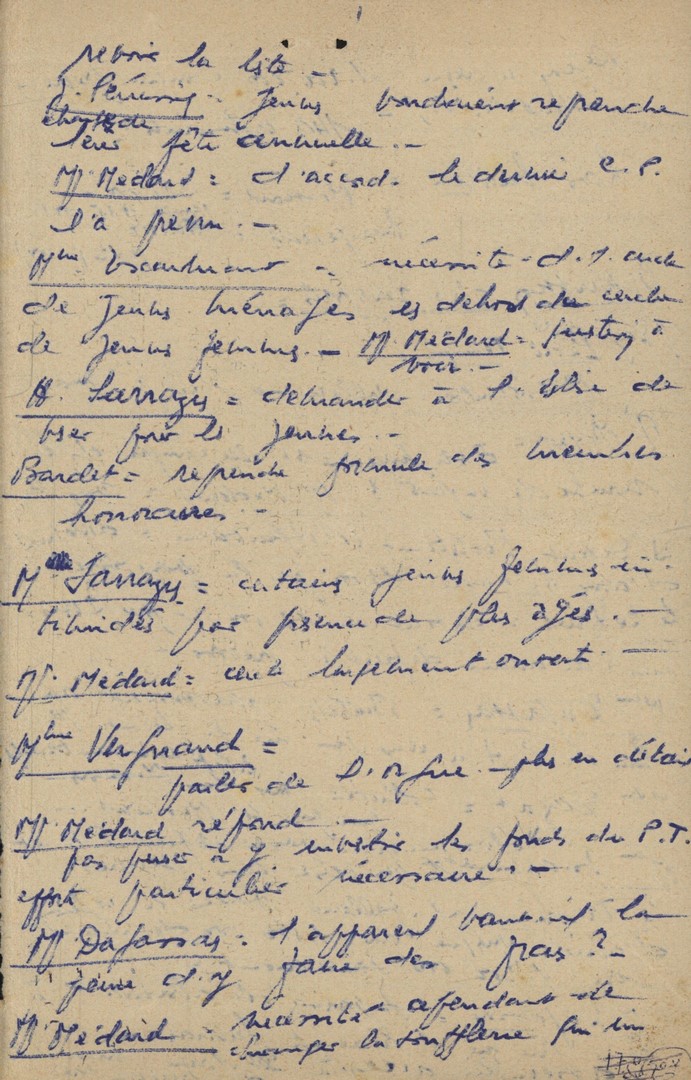 revoir la liste -
J. Pénissy - Jeunes voudraient reprendre
charge de
leur fête annuelle. -
Mr Médard = d'accord. le dernier C.P.
l'a prévu. -
Mme - nécessité d'1 cercle
de jeunes ménages en dehors du cercle
de jeunes femmes. - Mr Médard =
voir. -
Sarrazy = demander à l'Eglise de
pour les jeunes. -
Bardet = reprendre formule des membres
honoraires. -
M Sarrazy = certaines jeunes femmes in-
timidées par présence de plus âgés. -
Mr Médard = cercle largement ouvert. -
Mme Vergniaud =
parler de l'orgue - plus en détail
Mr Médard répond. -
pas penser à y investir les fonds du P.T.
effort particulier nécessaire. -
Mr Dafarras = l'appareil vaut-il la
peine d'y faire des frais ? -
Mr Médard = nécessité cependant de
changer la soufflerie qui